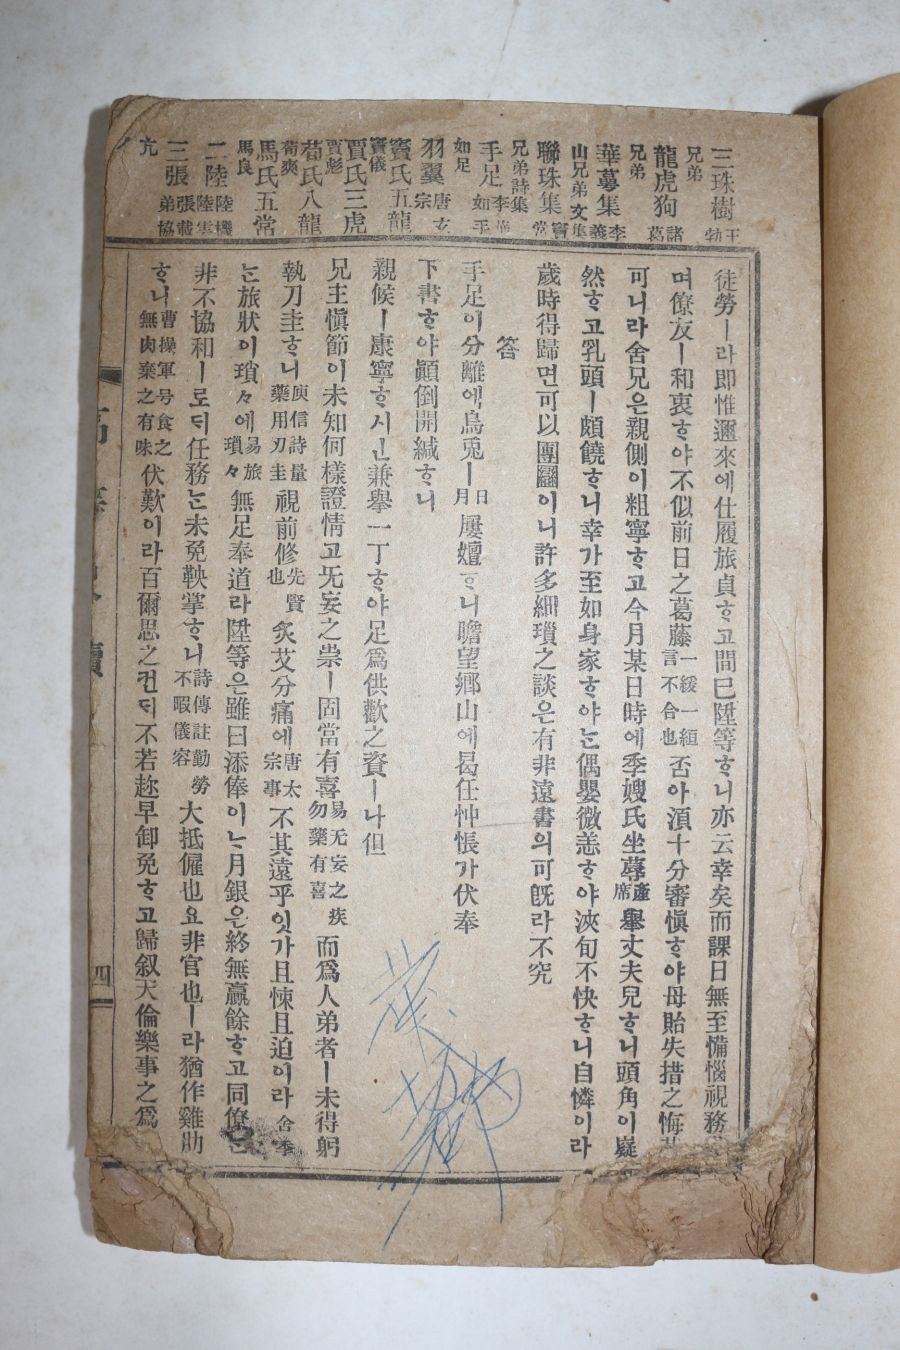 三珠樹 王勃
兄弟
龍虎狗 諸葛
兄弟
華萼集 李義
山兄弟文集
聯珠集 竇常
兄弟詩集
手足 李華
如手
如足
羽翼 唐玄宗
竇氏五龍
竇儀
賈氏三虎
賈彪
荀氏八龍
荀爽
馬氏五常
馬良
二陸 陸機陸雲
三張 張載弟協
亢
徒勞ㅣ라即惟邇來에仕履旅貞ᄒᆞ고間已陞等ᄒᆞ니亦云幸矣而課日無至備惱視務
며僚友ㅣ和衷ᄒᆞ야不似前日之葛藤 一緩一絙言不合也 否아湏十分審愼ᄒᆞ야毋貽失措之悔
可니라舍兄은親側이粗寧ᄒᆞ고今月某日時에季嫂氏坐蓐 產席 擧丈夫兒ᄒᆞ니頭角이嶷
然ᄒᆞ고乳頭ㅣ頗饒ᄒᆞ니幸가至如身家ᄒᆞ야ᄂᆞᆫ偶嬰微恙ᄒᆞ야浹旬不快ᄒᆞ니自憐이라
歲時得歸면可以團圞이니許多細瑣之談은有非遠書의可旣라不究
答
手足이分離에烏兎ㅣ 日月 屢嬗ᄒᆞ니瞻望鄕山에曷任忡悵가伏奉
下書ᄒᆞ야顚倒開緘ᄒᆞ니
親候ㅣ康寧ᄒᆞ시고兼擧一丁ᄒᆞ야足爲供歡之資ㅣ나但
兄主愼節이未知何樣證情고无妄之祟ㅣ固當有喜 易无妄之疾勿藥有喜 而爲人弟者ㅣ未得躬
執刀圭ᄒᆞ니 庾信詩量藥用刀圭 視前修 先賢也 灸艾分痛에 唐太宗事 不其遠乎잇가且悚且迫이라 舍季
ᄂᆞᆫ旅狀이瑣々에 易旅瑣々 無足奉道라陞等은雖曰添俸이ᄂᆞ月銀은終無贏餘ᄒᆞ고同僚ᄂᆞᆫ
非不協和ㅣ로ᄃᆡ任務ᄂᆞᆫ未免鞅掌ᄒᆞ니 詩傳註勤勞不暇儀容 大抵傭也요非官也ㅣ라猶作雞肋
ᄒᆞ니 曹操軍号食之無肉棄之有味 伏歎이라百爾思之컨ᄃᆡ不若趂早卸免ᄒᆞ고歸叙天倫樂事之爲
四